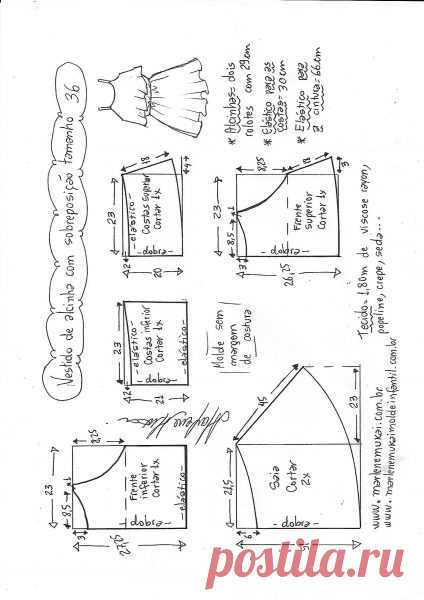 Vestido de alcinha com sobreposição tamanho 36
* Alcinhas = dois
rolotes com 29cm
* Elástico para as
costas = 30cm
* Elástico para
a cintura = 66cm
23
2
- elástico -
Costas superior
Cortar 1x
- dobra -
20
18
4
8,25
23
8,5
1
18
Frente
superior
Cortar 1x
- dobra -
3
26,25
3
23
2
- elástico -
Costas inferior
Cortar 1x
- elástico -
- dobra -
21
Molde sem
margem
de costura
Tecido = 1,80m de viscose rayon,
popeline, crepe, seda...
23
8,25
8,5
1
3
Frente
inferior
Cortar 1x
- elástico -
- dobra -
27,25
45
21,5
23
Saia
Cortar
2x
- dobra -
6
www.marlenemukai.com.br
www.marlenemukaimoldeinfantil.com.br
postila.ru